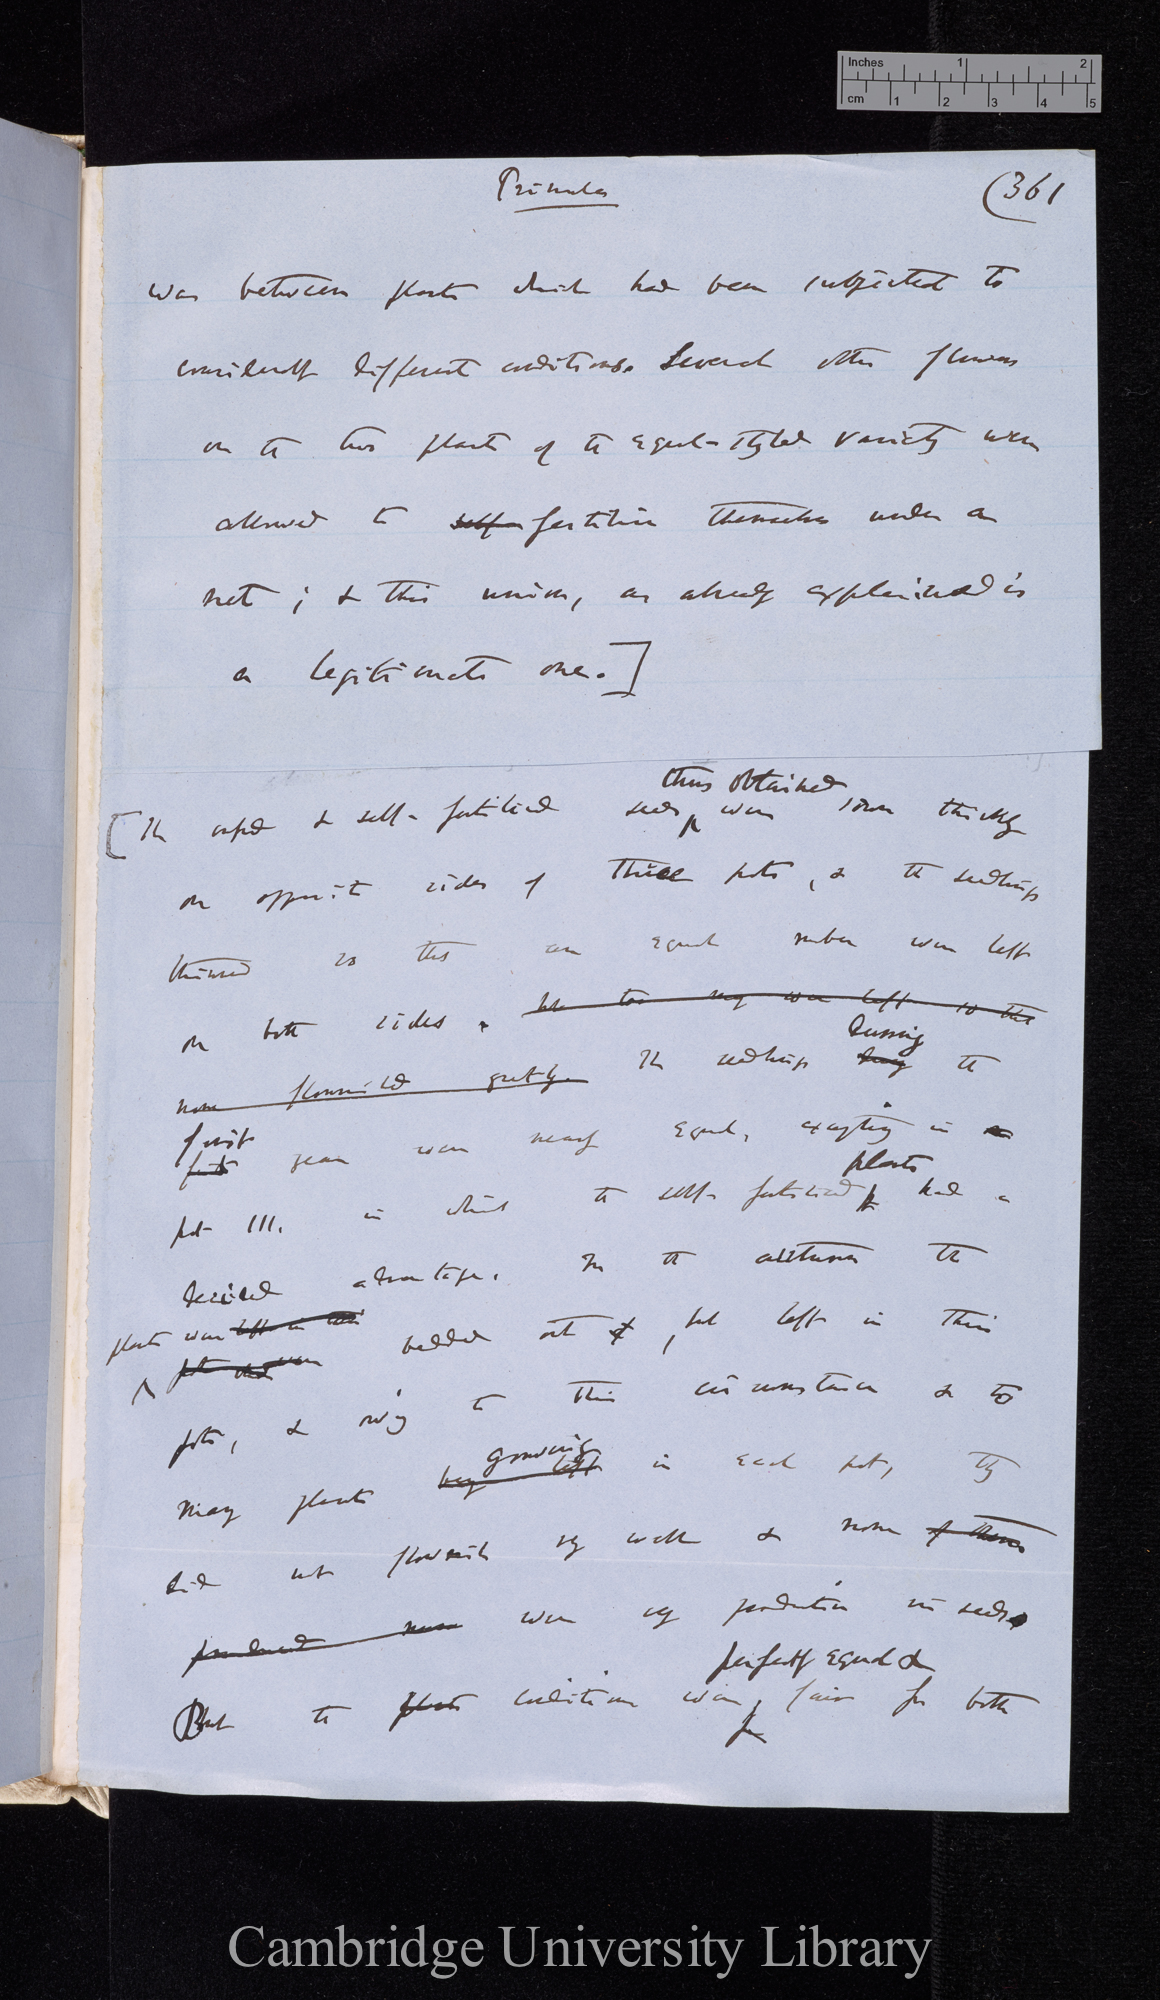 Inches 1 2
cm 1 2 3 4 5
Primula (361
was between plants which had been subjected to
considerably different conditions. Several other flowers
on the two plants of the equal-styled variety were
allowed to self-fertilise themselves under a
net; & this union, as already explained is
a legitimate one.]
thus obtained
[The crossed & self-fertilised seeds were sown thickly
on opposite sides of three pots, & the seedlings
thinned so that an equal number were left
on both sides. but too many were left so that
during
none flourished greatly The seedlings during the
first
first year were nearly equal, excepting in
plants
pot III. in which the self-fertilised had a
decided advantage. In the autumn the
plants were left in their
bedded out & , but left in this
pots, & owing to this circumstance & to
growing
many plants being left in each pot, they
did not flourish very well & none of them
produced were very productive in seeds
perfectly equal &
But the plants conditions were fair for both
Cambridge University Library